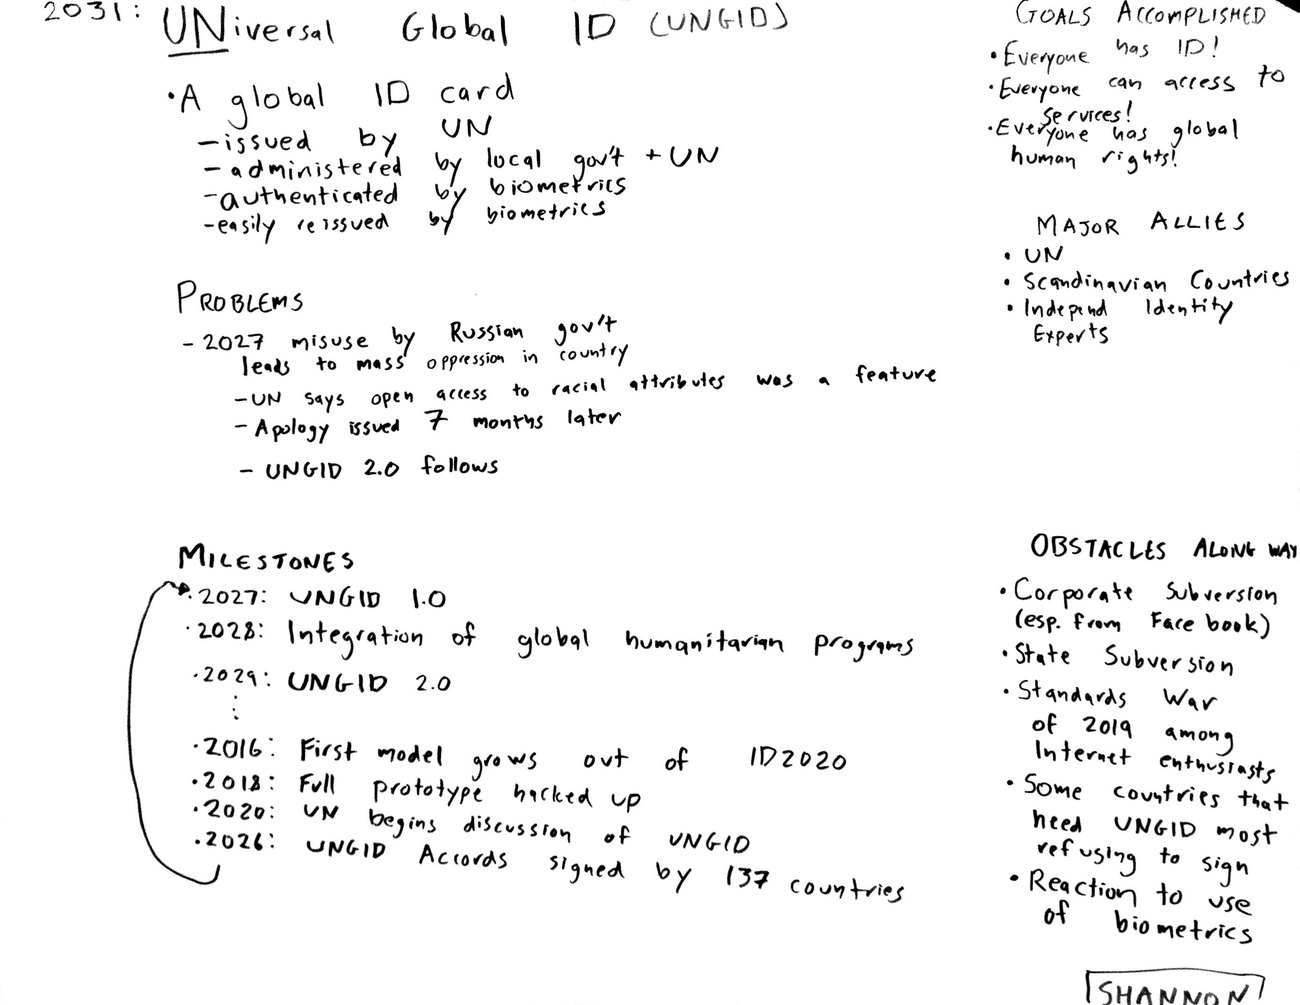 2031: UNiversal Global ID (UNGID)
• A global ID card
- issued by UN
- administered by local gov't + UN
- authenticated by biometrics
- easily reissued by biometrics
PROBLEMS
- 2027 misuse by Russian gov't
leads to mass oppression in country
- UN says open access to racial attributes was a feature
- Apology issued 7 months later
- UNGID 2.0 follows
MILESTONES
• 2027: UNGID 1.0
• 2028: Integration of global humanitarian programs
• 2029: UNGID 2.0
⋮
• 2016: First model grows out of ID2020
• 2018: Full prototype hacked up
• 2020: UN begins discussion of UNGID
• 2026: UNGID Accords signed by 137 countries
GOALS ACCOMPLISHED
• Everyone has ID!
• Everyone can access to
services!
• Everyone has global
human rights!
MAJOR ALLIES
• UN
• Scandinavian Countries
• Independ Identity
Experts
OBSTACLES ALONG WAY
• Corporate Subversion
(esp. from Facebook)
• State Subversion
• Standards War
of 2019 among
Internet enthusiasts
• Some countries that
need UNGID most
refusing to sign
• Reaction to use
of biometrics
SHANNON